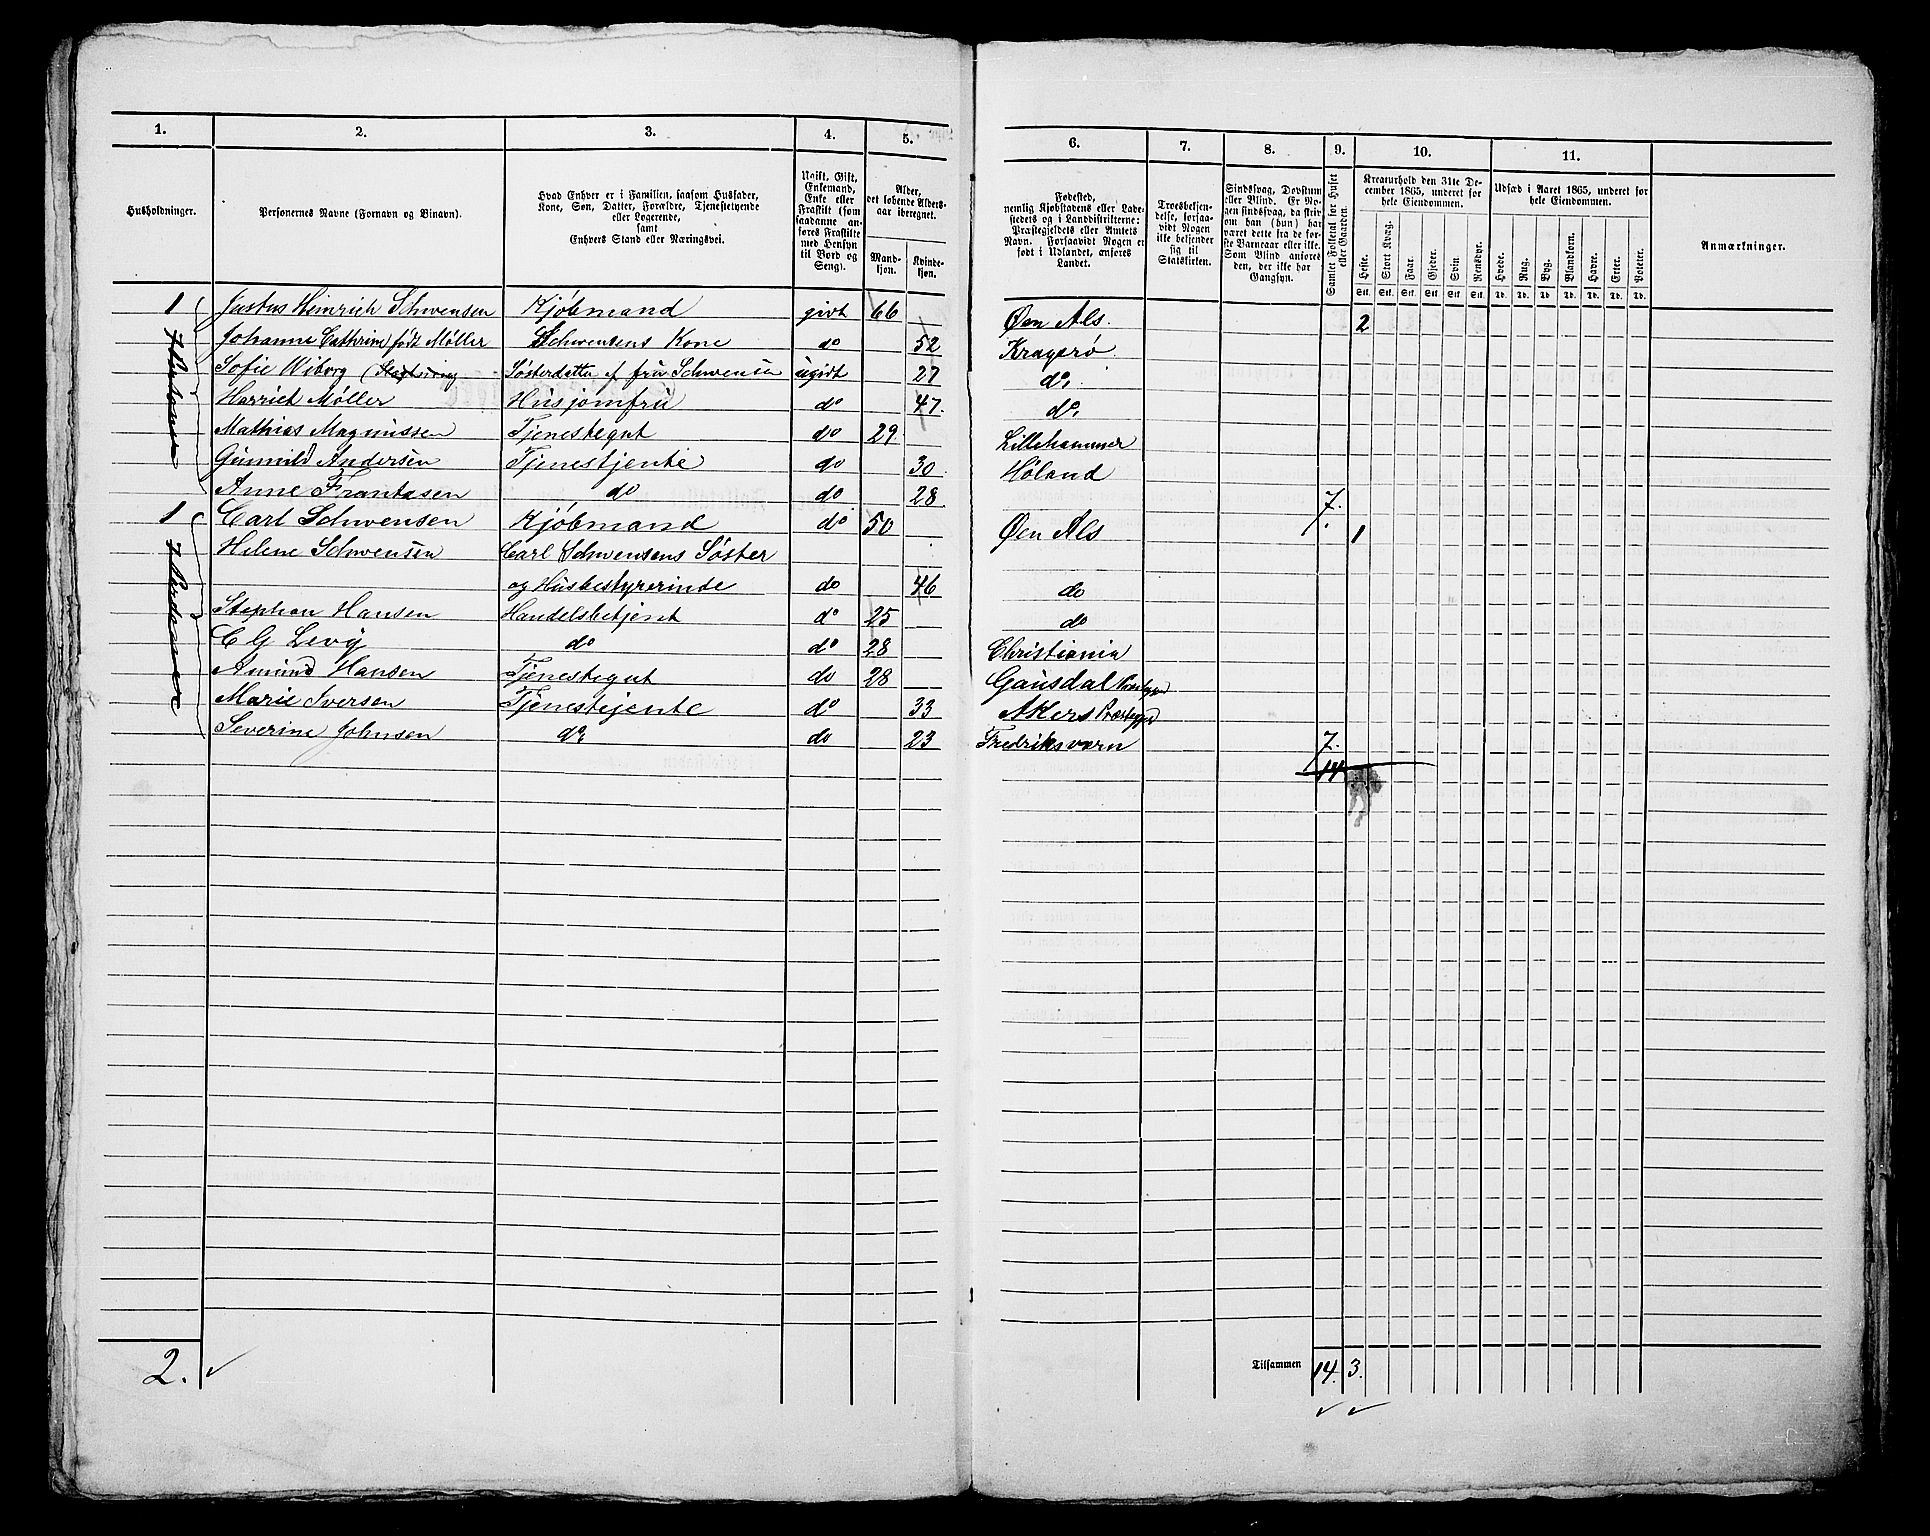 1. 2. 3. 4. 5. 6. 7. 8. 9. 10. 11.
Husholdninger.
Personernes Navne (Fornavn og Binavn).
Hvad Enhver er i Familien, saasom Husfader,
Kone, Søn, Datter, Forældre, Tjenestetyende
eller Logerende,
samt
Enhvers Stand eller Næringsvei.
Ugift, Gift,
Enkemand,
Enke eller
Fraskilt (som
saadanne an-
føres Fraskilte
med Hensyn
til Bord og
Seng).
Alder,
det løbende Alders-
aar iberegnet.
Mand-
kjøn.
Kvinde-
kjøn.
Fødested,
nemlig Kjøbstadens eller Lade-
stedets og i Landdistrikterne:
Præstegjeldets eller Amtets
Navn. Forsaavidt Nogen er
født i Udlandet, anføres
Landet.
Troesbekjen-
delse, forsaa-
vidt Nogen
ikke bekjender
sig til
Statskirken.
Sindssvag, Døvstum
eller Blind. Er No-
gen sindssvag, da skriv
om han (hun) har
været dette fra de før-
ste Barneaar eller ikke.
Som Blind anføres
den, der ikke har
Gangsyn.
Samlet Folketal for Huset
eller Gaarden.
Kreaturhold den 31te De-
cember 1865, underet for
hele Eiendommen.
Heste. Stort Kvæg. Faar. Gjeder. Svin. Rensdyr.
Stk. Stk. Stk. Stk. Stk. Stk.
Udsæd i Aaret 1865, underet for
hele Eiendommen.
Hvede. Rug. Byg. Blandkorn. Havre. Erter. Poteter.
Td. Td. Td. Td. Td. Td. Td.
Anmærkninger.
1 Justus Heinrich Schwensen Kjöbmand givt 66 Øen Als. 2
Johanne Cathrine født Møller Schwensens Kone do 52 Kragerø
Sofie Wiborg Søsterdatter af fru Schwensen ugidt 27 do.
Harriet Møller Husjomfru do 47. do.
Mathias Magnussen Tjenestegut do 29. Lillehammer
Gunnild Andersen Tjenestjente do 30 Høland
Anne Frantzsen do do 28. 7.
1 Carl Schwensen Kjøbmand do 50 Øen Als 1
Helene Schwensen Carl Schwensens Søster
og Husbestyrerinde do 46 do
Stephan Hansen Handelsbetjent do 25 do
C G Levy do do 28 Christiania
Amund Hansen Tjenestegut do 28 Gausdal
Marie Iversen Tjenestejente do 33 Akers
Severine Johnsen do do 23 Fredriksværn 7.
14
2.
Tilsammen 14. 3.